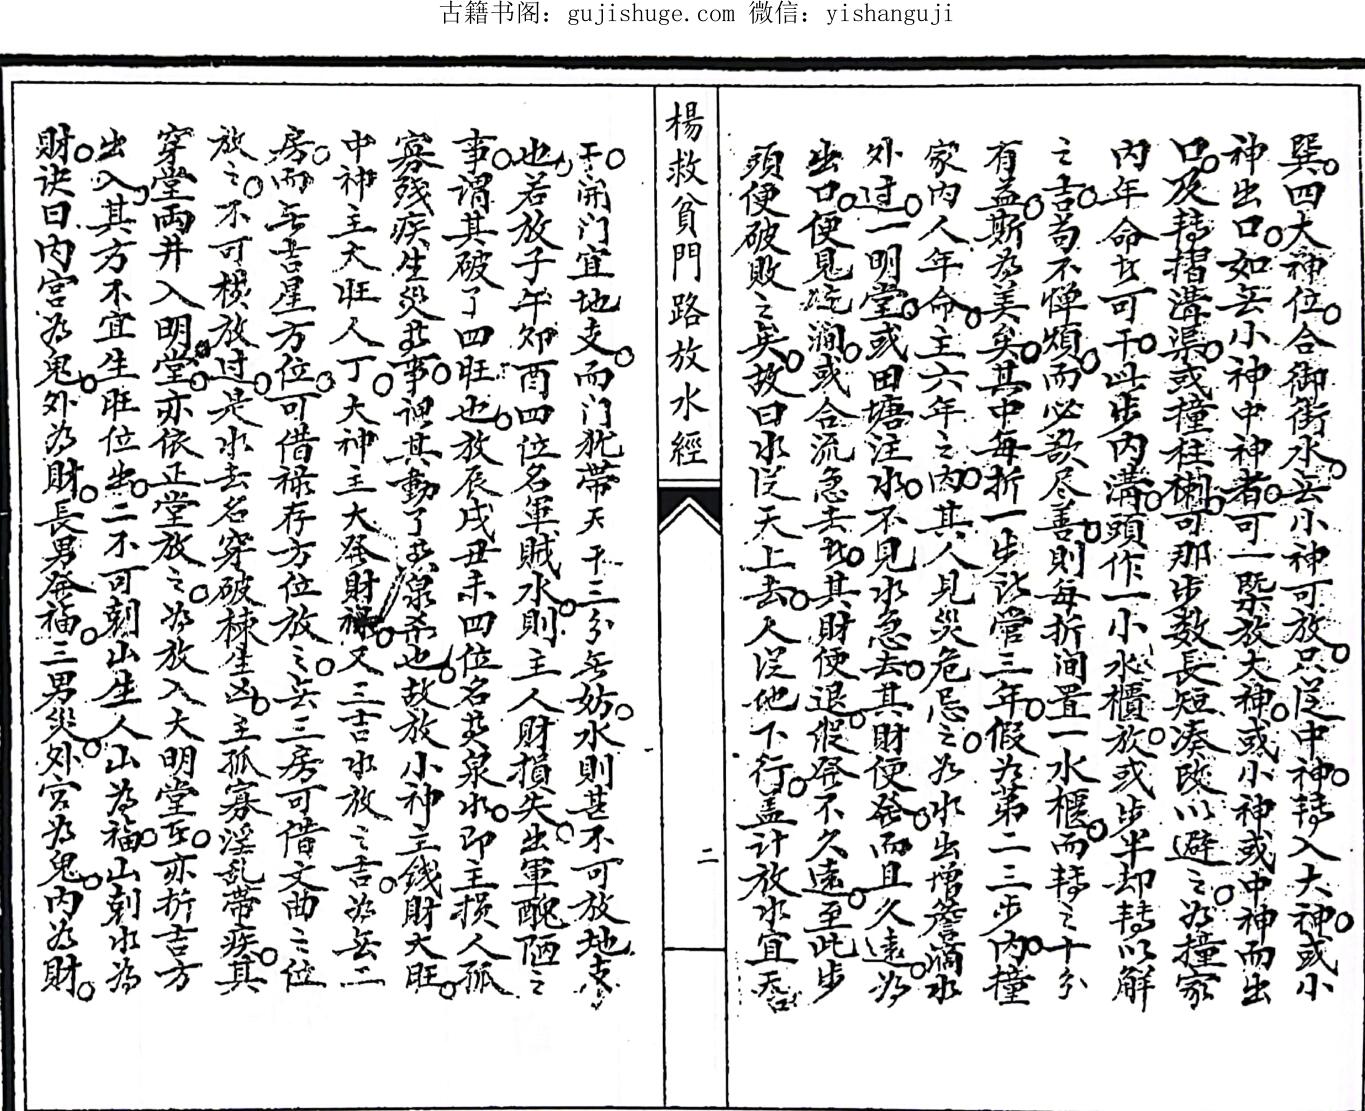 古籍书阁：gujishuge.com 微信：yishanguji
巽四大神位合御街水去小神可放只从中神转入大神或小
神出口如去小神中神者可一槩放大神或小神或中神而出
口及转摺溝渠或撞柱礎可那步数長短湊跌以避之为撞家
内年命甘可干此步内溝頭作一小水櫃放或步半却转以解
之吉苟不憚煩而必欲尽善則每折间置一水櫃而转之十分
有益斯为美矣其中每折一步以管三年假为第二三步内撞
家内人年命主六年之内其人見災危忌之水出增簷滴水
外过一明堂或田塘注水不見水急去其財便發而且久遠
出口便見坑澗或合流急去其財便退縱發不久遠至此步
頭便破敗之矣故曰水从天上去人从地下行盖计放水宜天
楊救貧門路放水經
二
干開门宜地支而门犹带天干三分无妨水則甚不可放地支
也若放子午夘酉四位名軍賊水則主人財損失出軍醜陋之
事谓其破了四旺也放辰戌丑未四位名黄泉水即主损人孤
寡残疾生災异事谓其動了黄泉杀也故放小神主錢財大旺
中神主大旺人丁大神主大發財禄又三吉水放之吉为无二
房而无吉星方位可借禄存方位放之去三房可借文曲之位
放之不可横放过是水去名穿破棟生凶主孤寡淫乱带疾其
穿堂两井入明堂亦依正堂放之为放入大明堂亦折吉方
出入其方不宜生旺位出二不可剋山生人山为福山剋水为
財诀曰内宫为鬼外为財長男発福三男災外宫为鬼内为財